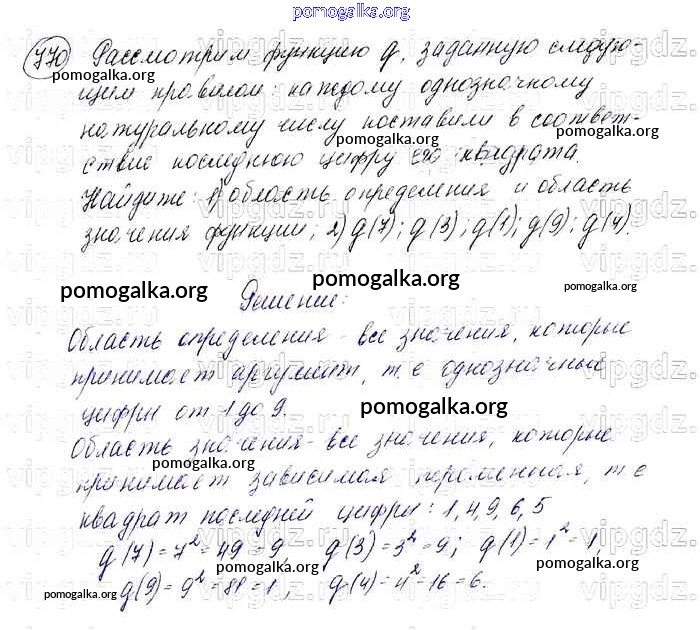 pomogalka.org
770 Рассмотрим функцию g, заданную следую-
щим правилом: каждому однозначному
натуральному числу поставили в соответ-
ствие последнюю цифру его квадрата.
Найдите: 1) область определения и область
значения функции; 2) g(7); g(3); g(1); g(9); g(4).
Решение:
Область определения - все значения, которые
принимает аргумент, т. е однозначные
цифры от 1 до 9.
Область значения - все значения, которые
принимает зависимая переменная, т е
квадрат последней цифры: 1, 4, 9, 6, 5
g(7) = 7² = 49 = 9 g(3) = 3² = 9; g(1) = 1² = 1,
g(9) = 9² = 81 = 1, g(4) = 4² = 16 = 6.
pomogalka.org
pomogalka.org
pomogalka.org
pomogalka.org
pomogalka.org
pomogalka.org
pomogalka.org
pomogalka.org
pomogalka.org
pomogalka.org
pomogalka.org
pomogalka.org